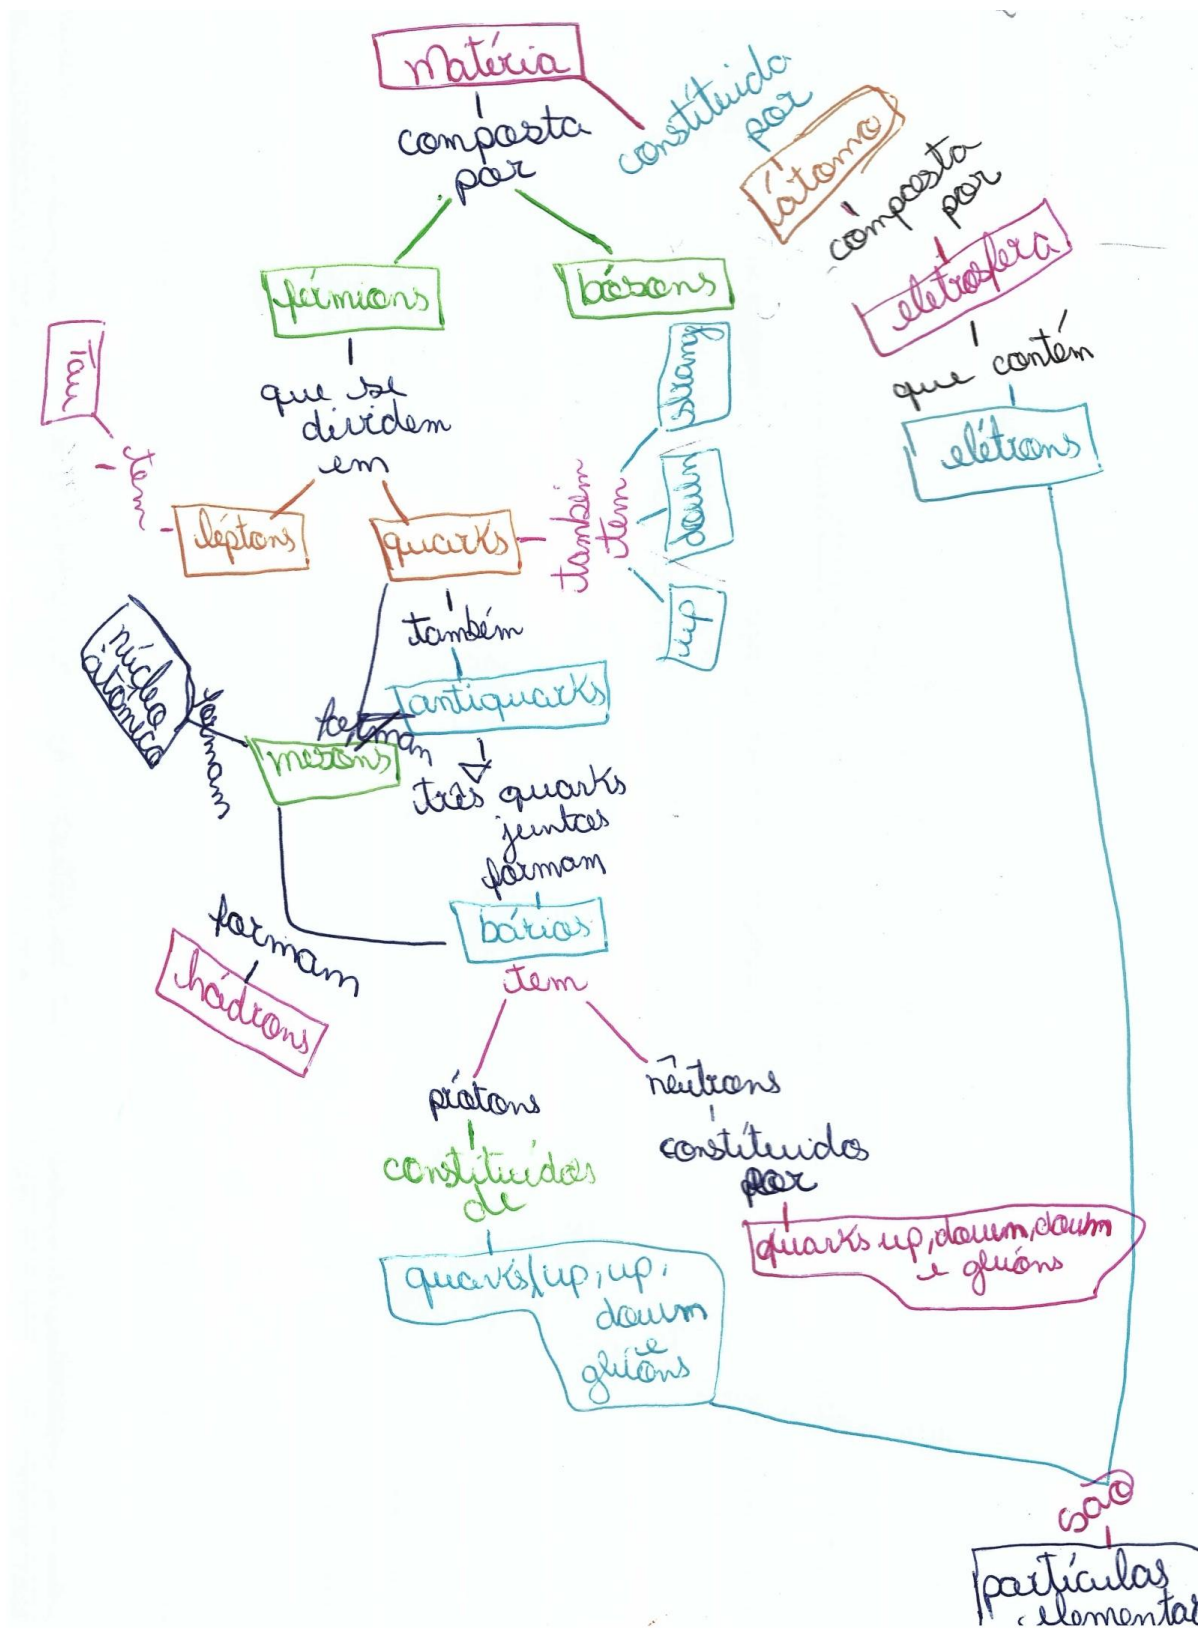 Matéria
composta
por
constituida
por
átomo
composta
por
eletrosfera
que contém
elétrons
férmions
bósons
que se
dividem
em
Tau
tem
léptons
quarks
também
tem
strang
doum
up
também
antiquarks
formam
mésons
núcleo
atômico
formam
três quarks
juntos
formam
bários
formam
hádrons
tem
prótons
nêutrons
constituídos
de
constituidos
por
quarks up, up,
doum
e
glúons
quarks up, doum, doum
e glúons
são
partículas
elementar